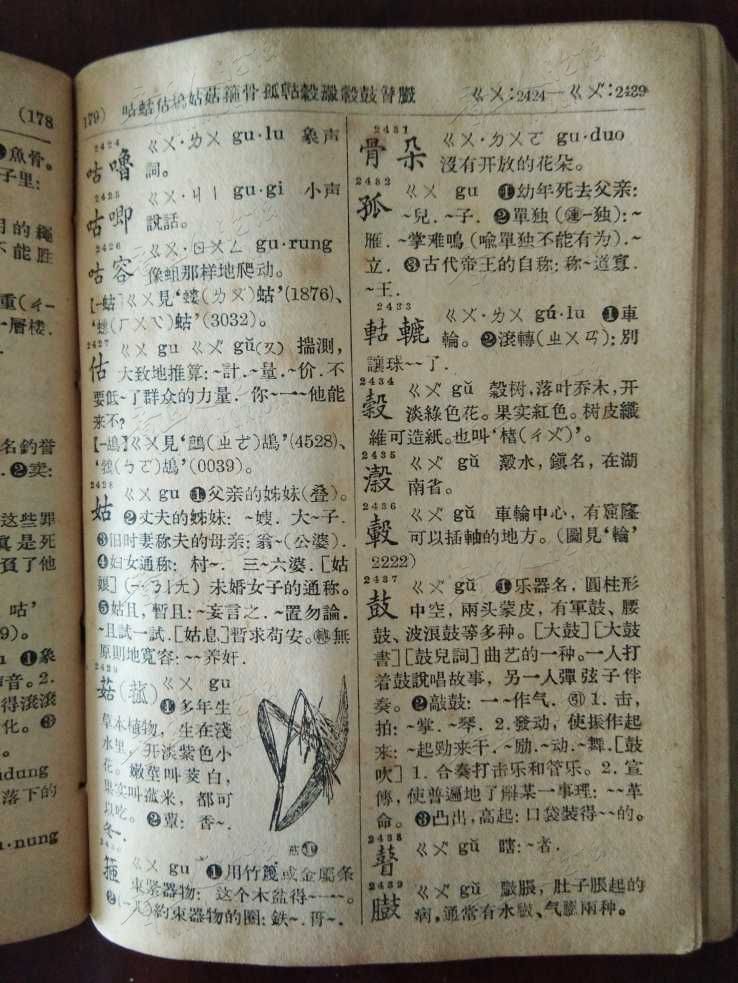 (178
❶魚骨。
子里:
月的繩
不能胜
重(ㄔ—
一層楼.
名釣誉
.❷卖:
这些罪
真是死
負了他
咕'
9).
❶象
声音。2.
得滾滾
化。❸
ndung
落下的
u·nung
179) 咕蛄估鴣姑菇箍骨孤軲穀瀔轂鼓瞽臌 ㄍㄨ:2424—ㄍㄨˇ:2439
2424
咕嚕 ㄍㄨ·ㄌㄨ gu·lu 象声
詞。
2425
咕唧 ㄍㄨ·ㄐㄧ gu·gi 小声
說話。
2426
咕容 ㄍㄨ·ㄖㄨㄥ gu·rung
像蛆那样地爬动。
[—蛄]ㄍㄨ見'螻(ㄌㄡˊ)蛄'(1876)、
蛄'(3032)。
2427
估 ㄍㄨ gu ㄍㄨˇ gŭ(又) 揣測,
大致地推算:~計.~量.~价.不
要低~了群众的力量.你~一~他能
来不?
[—鴣]ㄍㄨ見'鷓(ㄓㄜˋ)鴣'(4528)、
'鵓(ㄅㄛˊ)鴣'(0039)。
2428
姑 ㄍㄨ gu ❶父亲的姊妹(叠)。
❷丈夫的姊妹: ~嫂.大~子.
❸旧时妻称夫的母亲:翁~(公婆).
❹妇女通称: 村~. 三~六婆.[姑
娘](—·ㄋㄧㄤ) 未婚女子的通称。
❺姑且,暫且:~妄言之.~置勿論.
~且試一試.[姑息]暫求苟安。無
原則地寬容:~~养奸.
2429
菇(菰) ㄍㄨ gu
❶多年生
草本植物, 生在淺
水里, 开淡紫色小
花。嫩莖叫茭白,
果实叫菰米, 都可
以吃。❷蕈: 香~.
冬~.
菰❶
2430
箍 ㄍㄨ gu ❶用竹篾或金屬条
束紧器物: 这个木盆得~一~.
❷(~儿)約束器物的圈:鉄~.
2431
骨朵 ㄍㄨ·ㄉㄨㄛ gu·duo
沒有开放的花朵。
2432
孤 ㄍㄨ gu ❶幼年死去父亲:
~兒.~子.❷單独(連—独):~
雁.~掌难鳴(喻單独不能有为).~
立.❸古代帝王的自称:称~道寡.
~王.
2433
軲轆 ㄍㄨˊ·ㄌㄨ gú·lu ❶車
輪。❷滾轉(ㄓㄨㄢˋ):別
讓球~~了.
2434
穀 ㄍㄨˇ gŭ 穀树,落叶乔木,开
淡綠色花。果实紅色。树皮纖
維可造紙。也叫'楮(ㄔㄨˇ)'。
2435
瀔 ㄍㄨˇ gŭ 瀔水,鎮名,在湖
南省。
2436
轂 ㄍㄨˇ gŭ 車輪中心,有窟窿
可以插軸的地方。(圖見'輪'
2222)
2437
鼓 ㄍㄨˇ gŭ ❶乐器名,圓柱形
中空,兩头蒙皮,有軍鼓、腰
鼓、波浪鼓等多种。[大鼓][大鼓
書][鼓兒詞]曲艺的一种。一人打
着鼓說唱故事, 另一人彈弦子伴
奏。❷敲鼓: 一~作气.(引)1.击,
拍:~掌.~琴. 2.發动, 使振作起
来:~起勁来干.~励.~动.~舞.[鼓
吹] 1.合奏打击乐和管乐。2.宣
傳,使普遍地了解某一事理:~~革
命。❸凸出,高起:口袋裝得~~的。
2438
瞽 ㄍㄨˇ gŭ 瞎:~者.
2439
臌 ㄍㄨˇ gŭ 臌脹, 肚子脹起的
病,通常有水臌、气臌兩种。